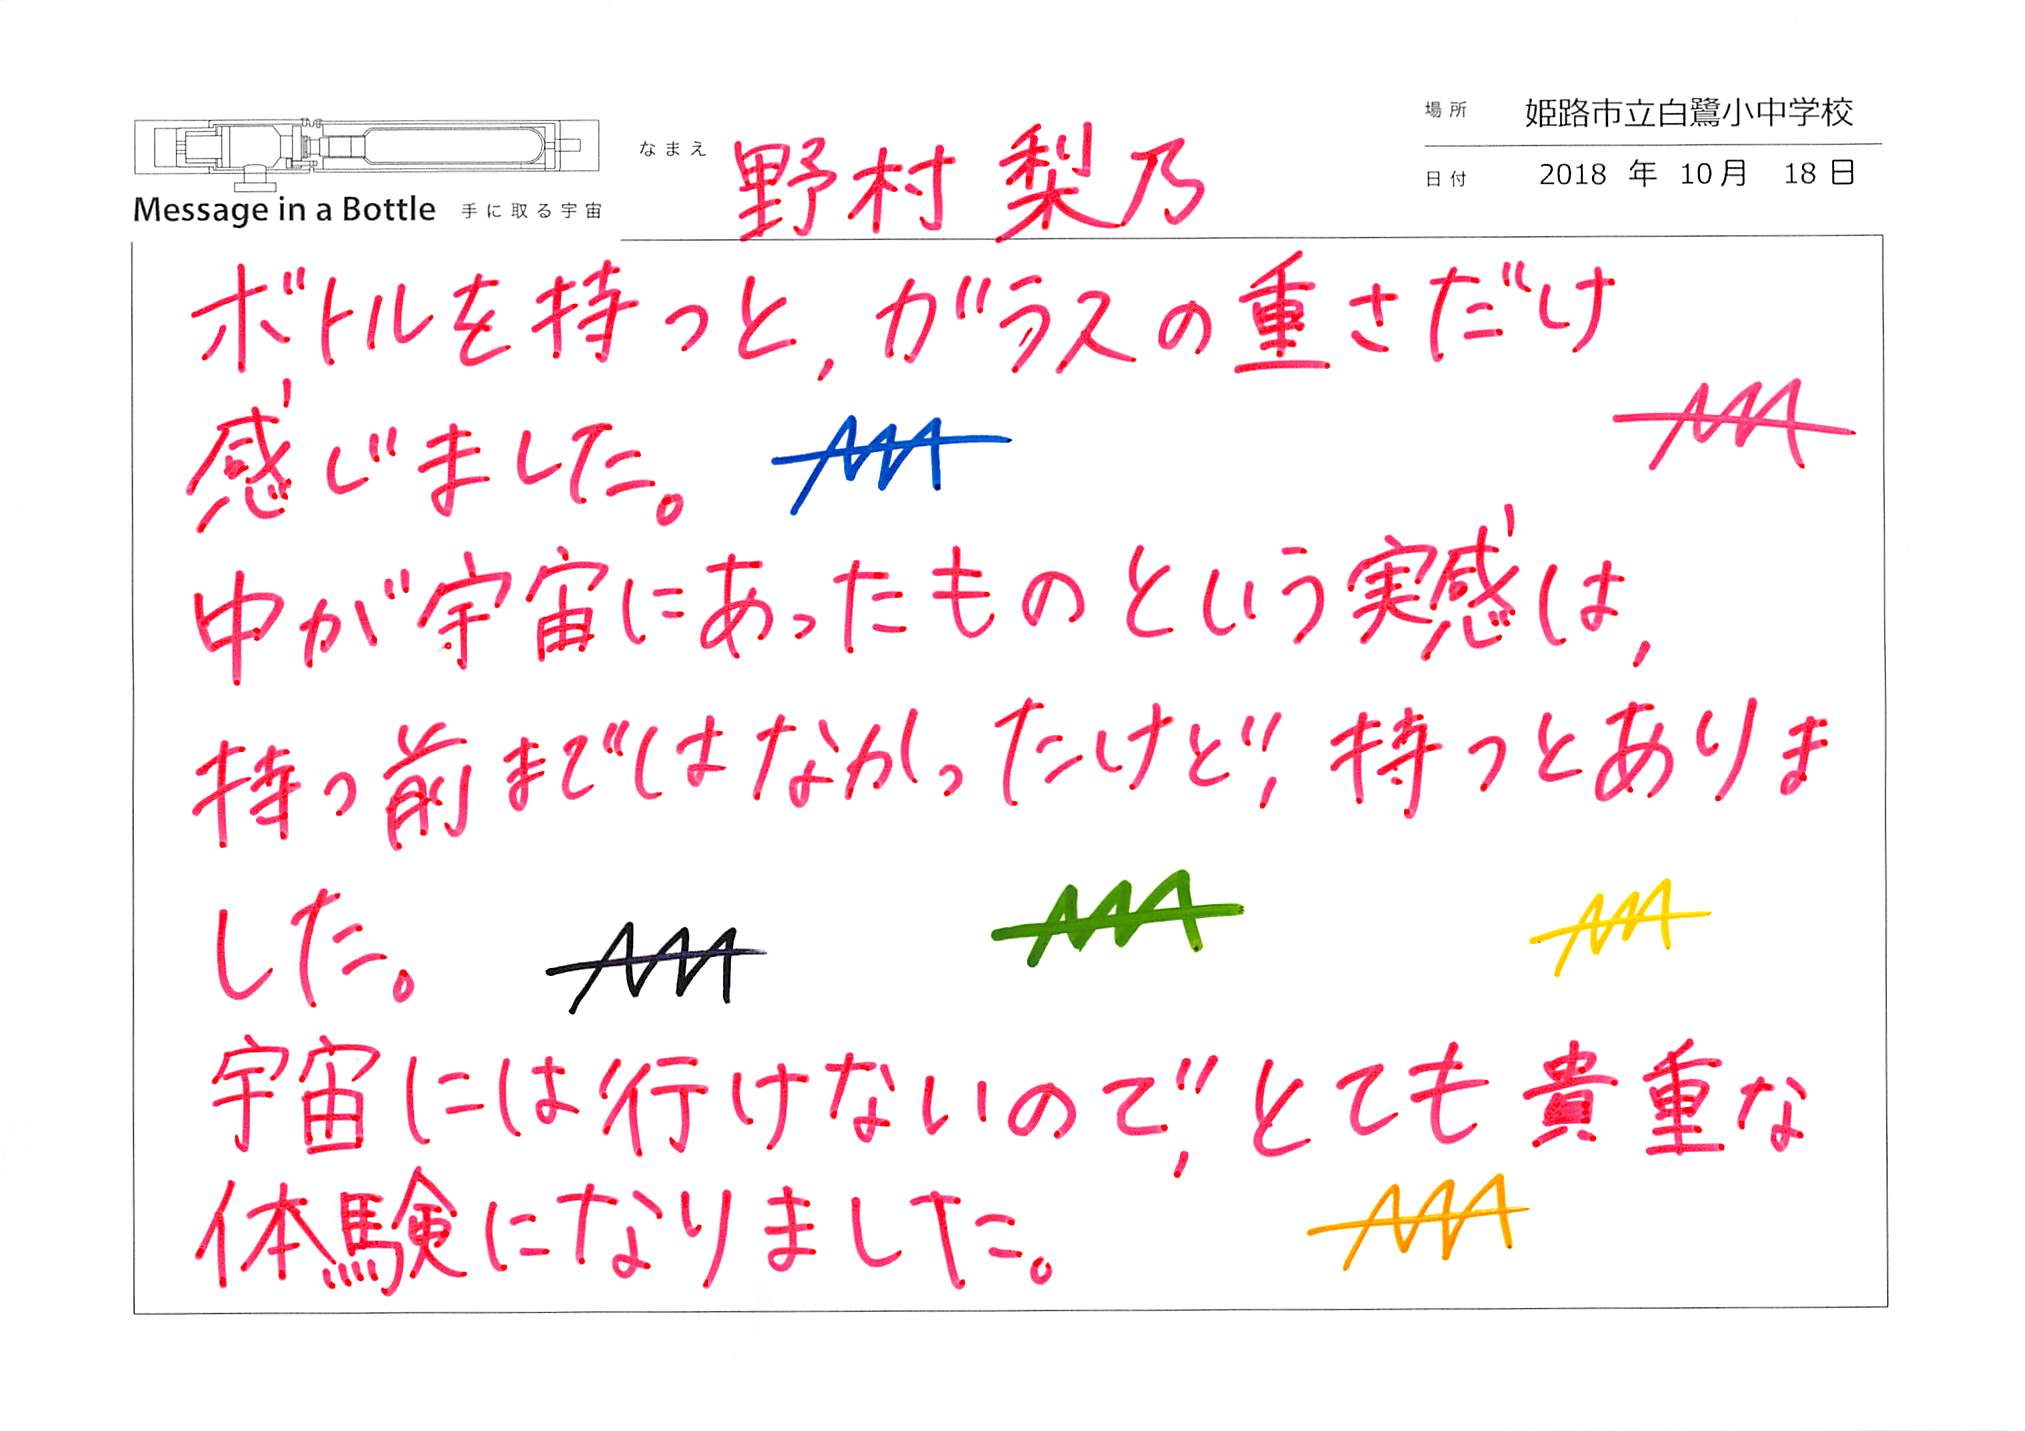 Message in a Bottle 手に取る宇宙
なまえ 野村 梨乃
場所 姫路市立白鷺小中学校
日付 2018 年 10 月 18 日
ボトルを持つと,ガラスの重さだけ
感じました。
中が宇宙にあったものという実感は,
持つ前まではなかったけど,持つとありま
した。
宇宙には行けないので,とても貴重な
体験になりました。